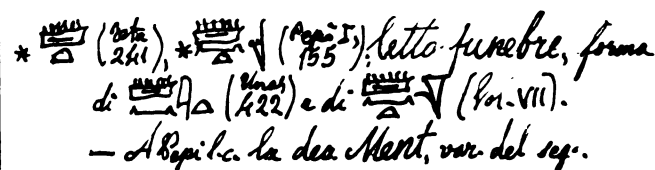 * (Teta 241), * (Pepi I, 155), letto funebre, forma
di (Unas 422) e di (Lri. VII).
— A Pepi l.c. la dea Ment, var. del seg.